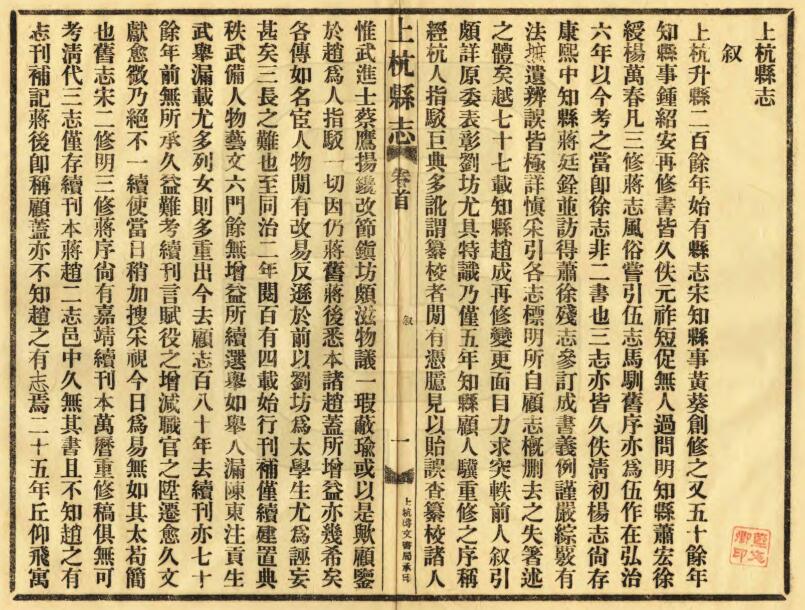 上杭縣志
叙
上杭升縣二百餘年始有縣志宋知縣事黃葵創修之又五十餘年
知縣事鍾紹安再修書皆久佚元祚短促無人過問明知縣蕭宏徐
綬楊萬春凡三修蔣志風俗嘗引伍志馬馴舊序亦爲伍作在弘治
六年以今考之當卽徐志非二書也三志亦皆久佚清初楊志尙存
康熙中知縣蔣廷銓並訪得蕭徐殘志參訂成書義例謹嚴綜覈有
法摭遺辨誤皆極詳愼采引各志標明所自顧志槪删去之失箸述
之體矣越七十七載知縣趙成再修變更面目力求突軼前人叙引
頗詳原委表彰劉坊尤具特識乃僅五年知縣顧人驥重修之序稱
經杭人指駁巨典多訛謂纂校者閒有憑臆見以貽誤查纂校諸人
上杭縣志
卷首
叙
一
上杭啨文書局承印
惟武進士蔡鷹揚鑱改節鎭坊頗滋物議一瑕蔽瑜或以是歟顧鑒
於趙爲人指駁一切因仍蔣舊蔣後悉本諸趙蓋所增益亦幾希矣
各傳如名宦人物閒有改易反遜於前以劉坊爲太學生尤爲誣妄
甚矣三長之難也至同治二年閱百有四載始行刊補僅續建置典
秩武備人物藝文六門餘無增益所續選舉如舉人漏陳東注貢生
武舉漏載尤多列女則多重出今去顧志百八十年去續刊亦七十
餘年前無所承久益難考續刊言賦役之增減職官之陞遷愈久文
獻愈徵乃絕不一續使當日稍加搜采視今日爲易無如其太苟簡
也舊志宋二修明三修蔣序尙有嘉靖續刊本萬曆重修稿俱無可
考清代三志僅存續刊本蔣趙二志邑中久無其書且不知趙之有
志刊補記蔣後卽稱顧蓋亦不知趙之有志焉二十五年丘仰飛寓